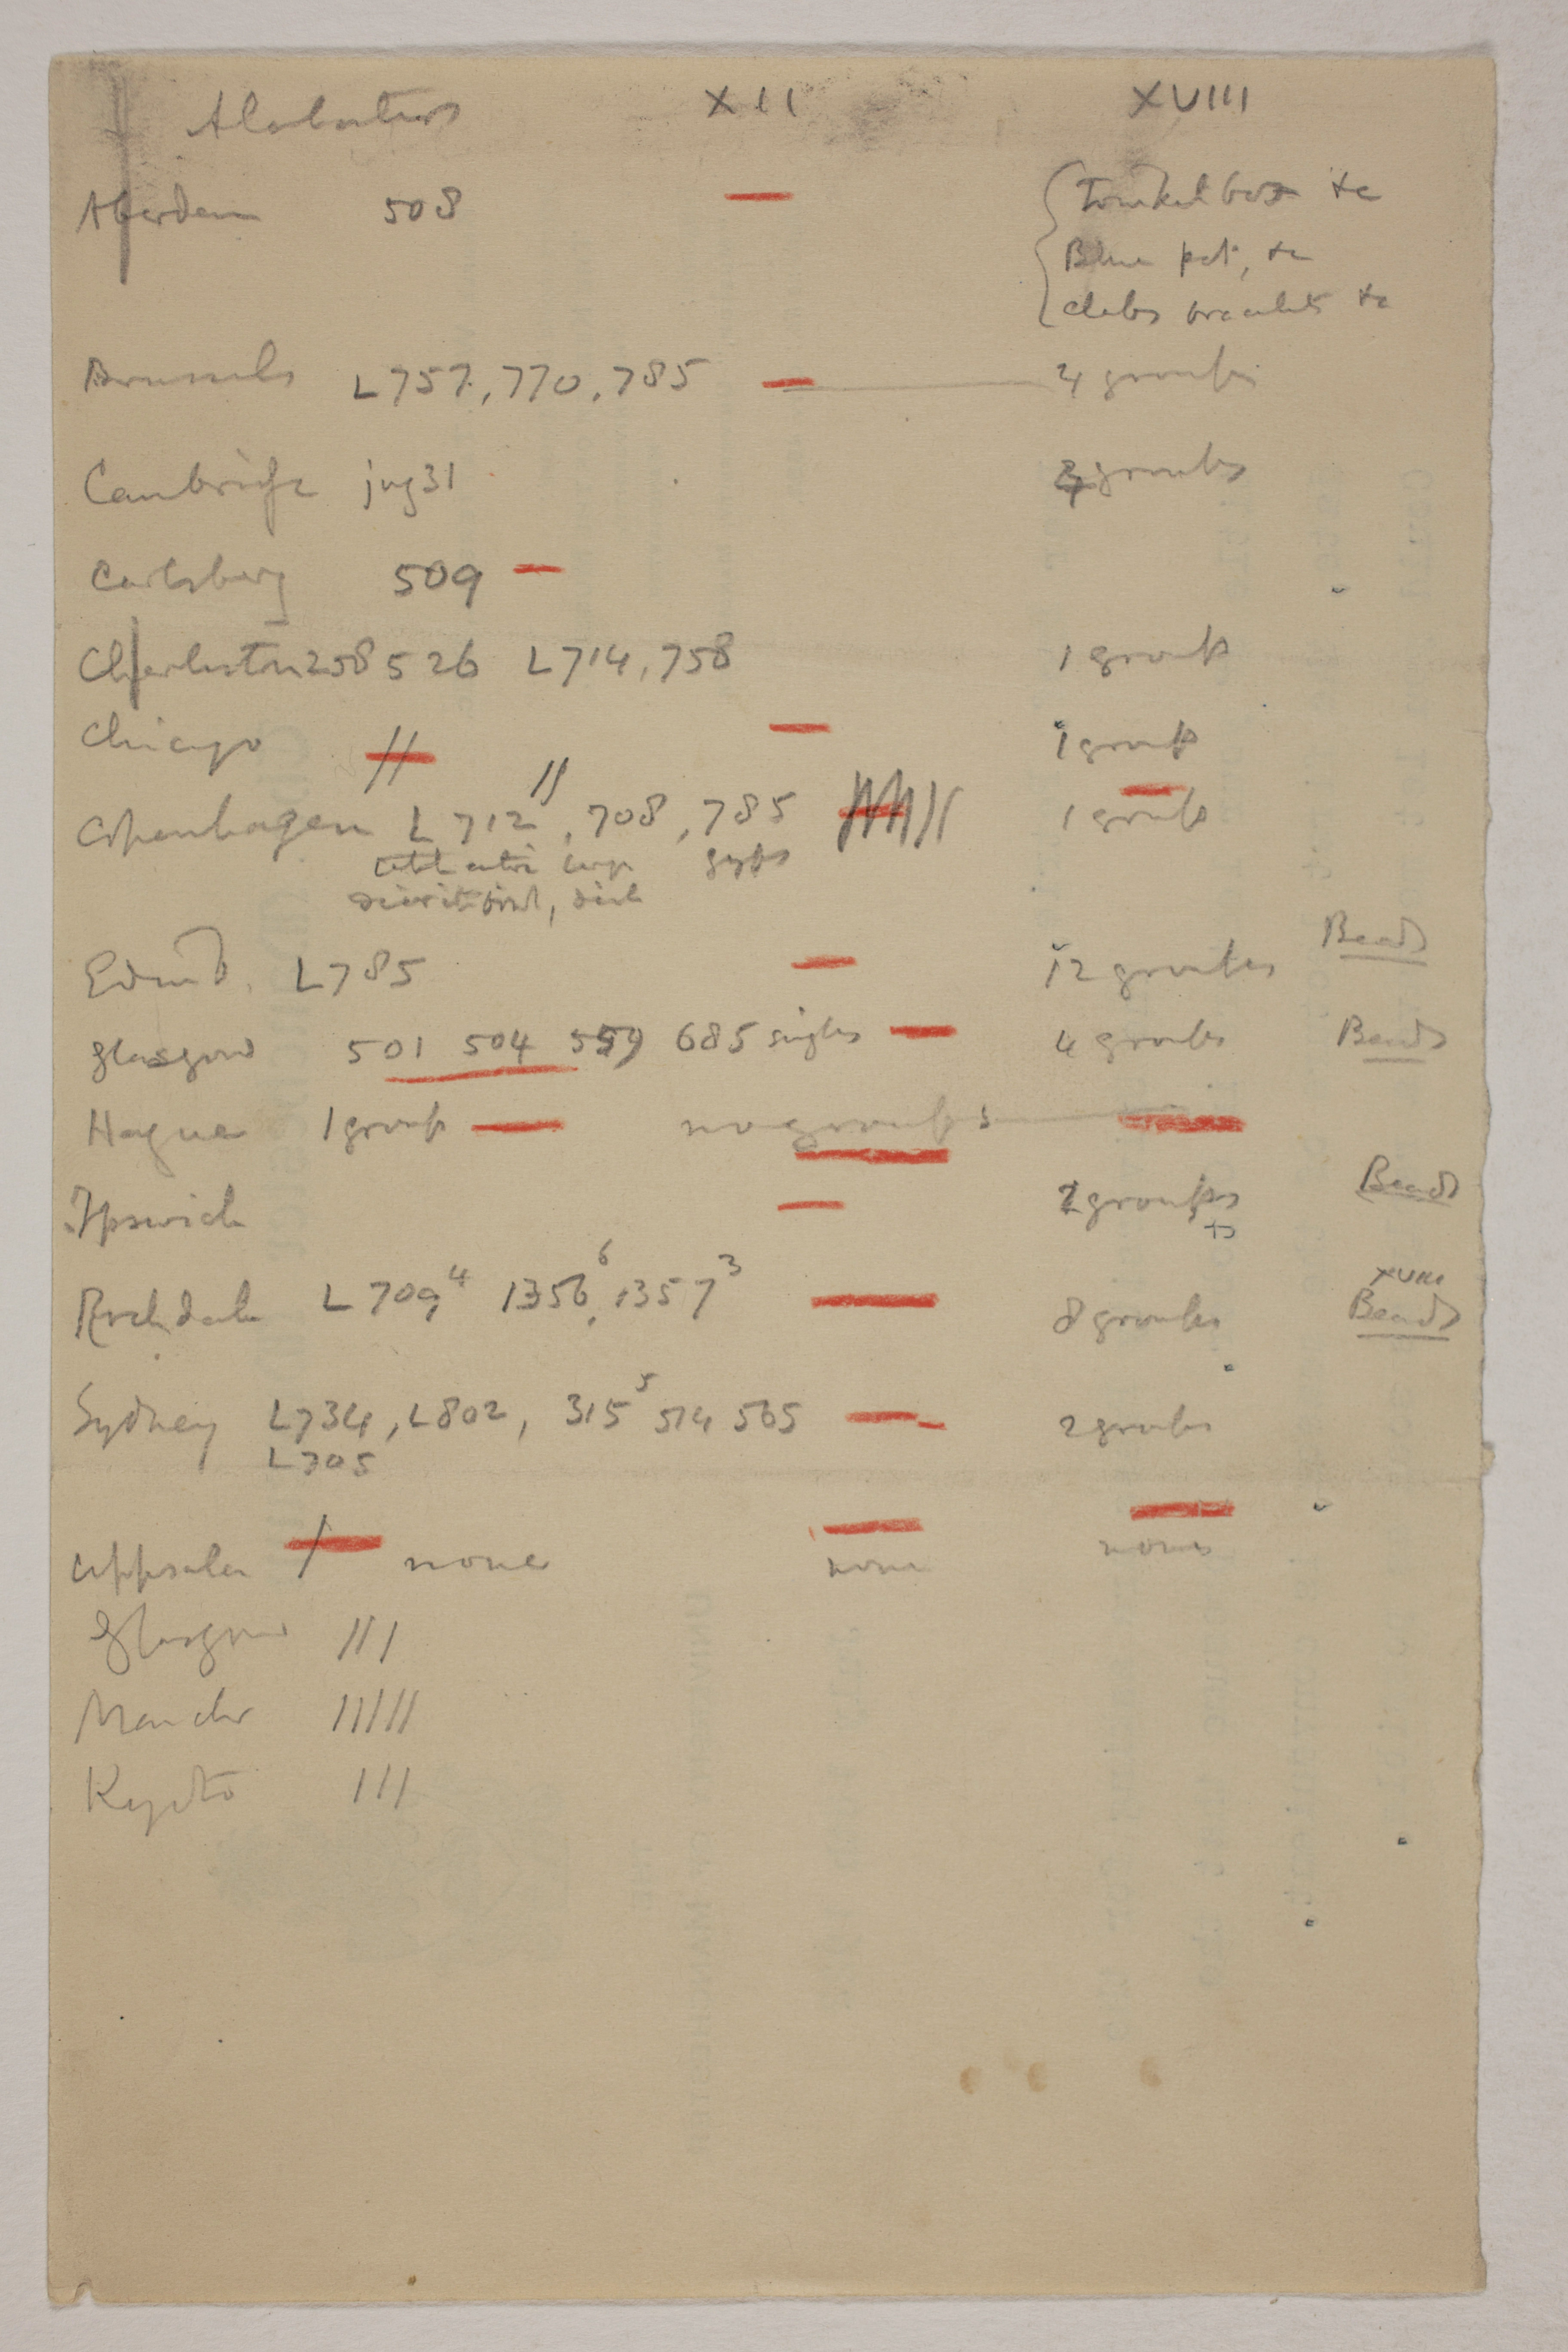 Alabasters XII XVIII
Aberdeen 508 Trinket box &c
Blue pot, &c
clubs bracelets &c
Brussels L757, 770, 785 4 groups
Cambridge jug 31 groups
Carlsberg 509
Charleston 258 526 L714, 758 1 group
Chicago // 1 group
Copenhagen L712 //, 708, 785 1 group
Edinb. L785 12 groups Beads
Glasgow 501 504 559 685 singles 4 groups Beads
Hague 1 group no groups
Ipswich 2 groups Beads
Rochdale L709⁴ 1356⁶, 1357³ 8 groups XVIII Beads
Sydney L734, L802, 315⁵ 514 565 2 groups
L305
Uppsala / none none none
Glasgow ///
Manchr /////
Kyoto ///